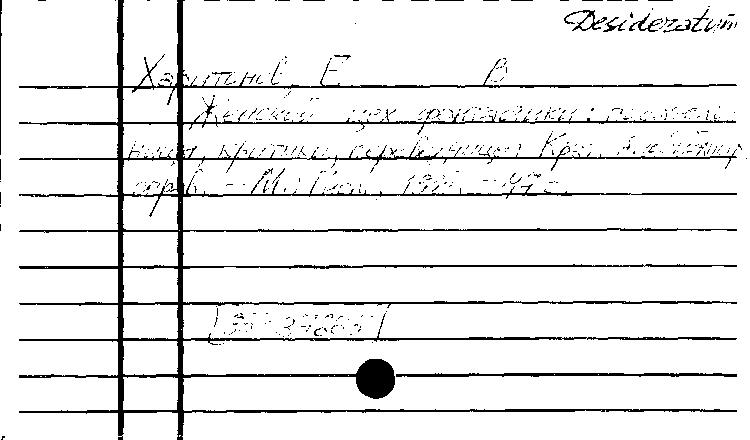 Desideratum
Харитонов, Е В
Женский цех фантастики: писатель-
ницы, критики, переводчицы: Крат. библиогр.
справ. - М.: